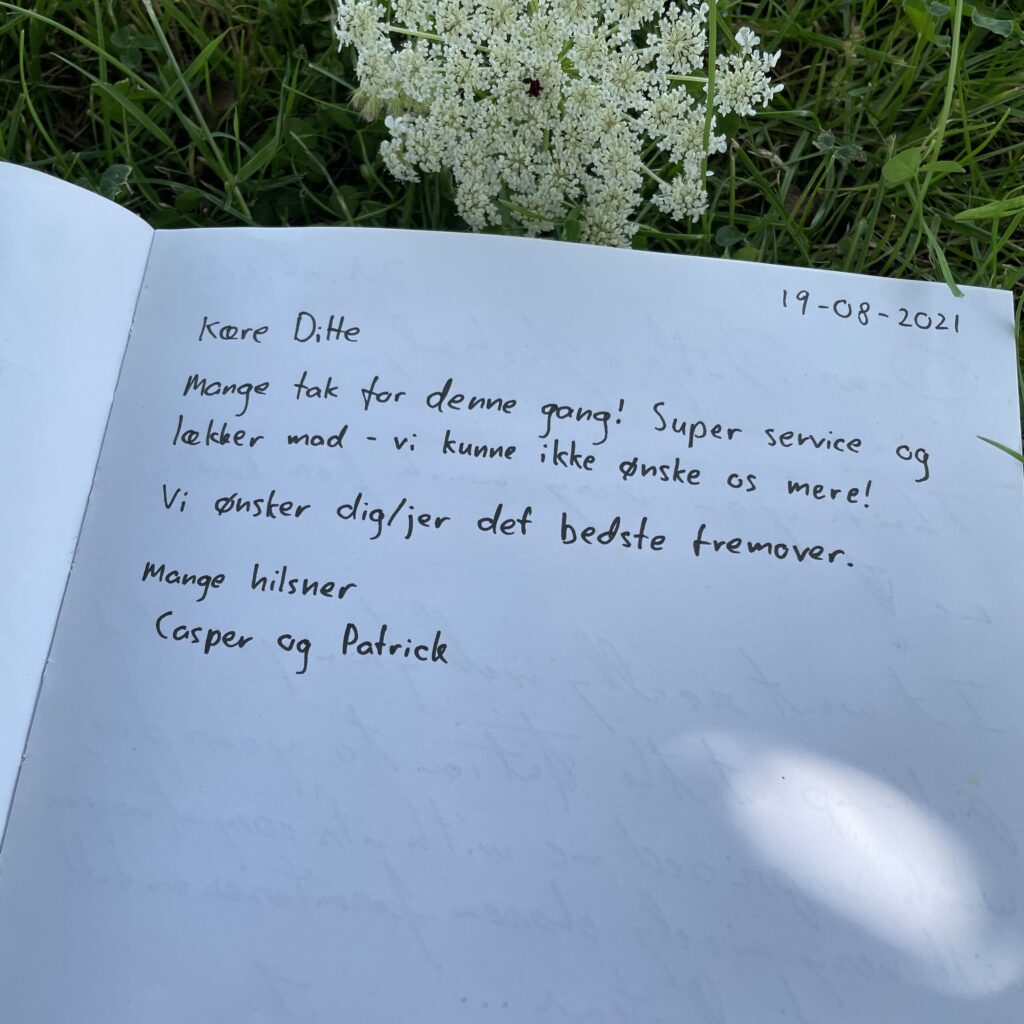 19-08-2021
Kære Ditte
Mange tak for denne gang! Super service og
lækker mad - vi kunne ikke ønske os mere!
Vi ønsker dig/jer det bedste fremover.
Mange hilsner
Casper og Patrick